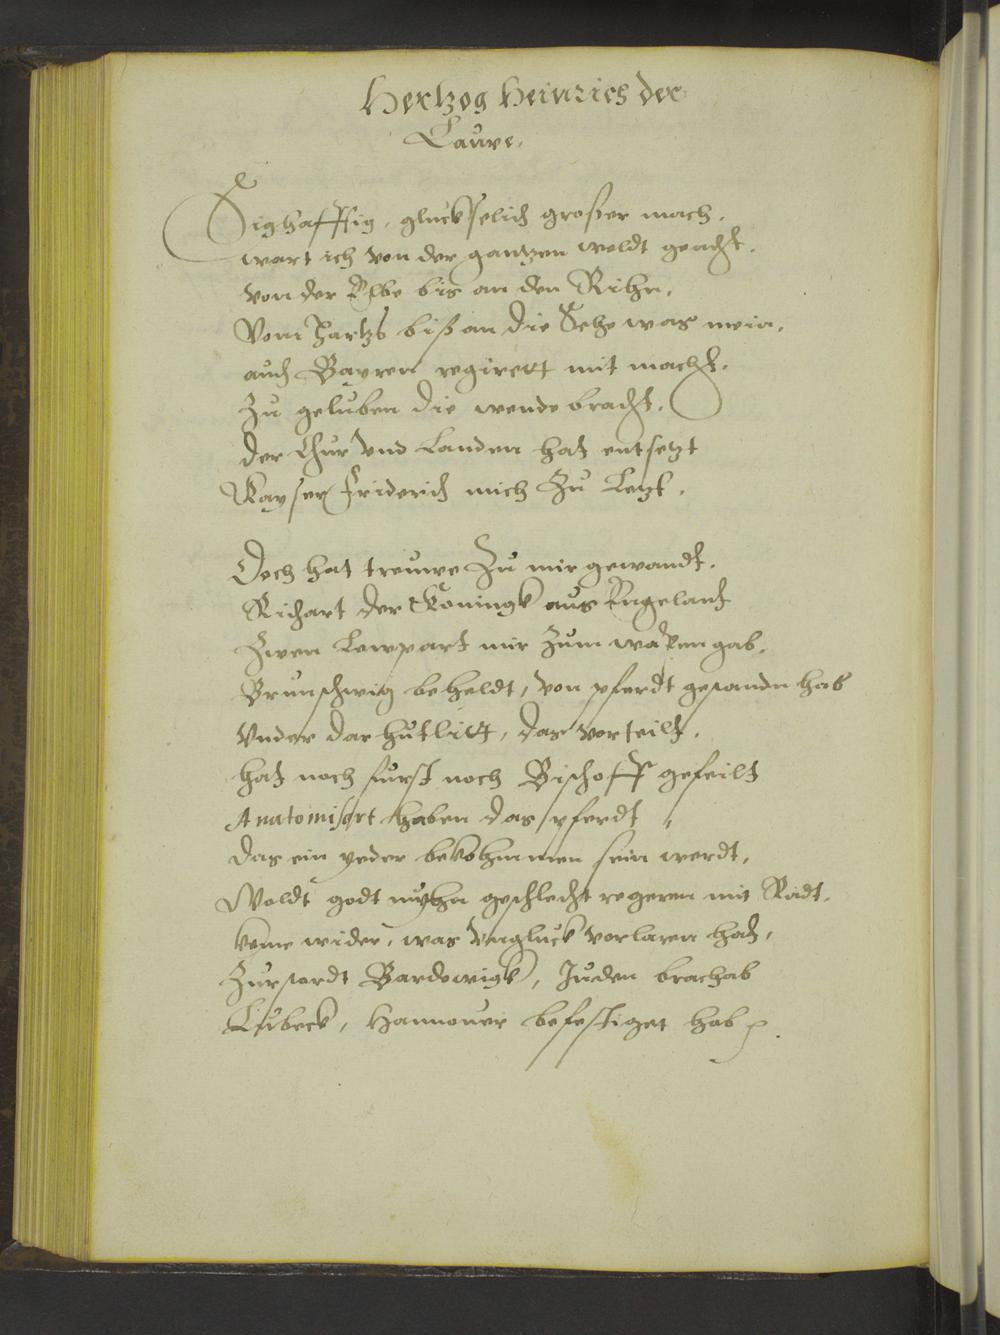 Hertzog Heinrics der
Lauwe.
Sighafftig, gluckselich grosser mach,
wart ich von der gantzen weldt geacht.
Von der Elbe bis an den Rihn,
Vom Hartz biß an die Sehe was mein,
auch Bayren regirett mit macht.
Zu geluben die wende bracht.
Der Chur vnd Landen hatt entsetzt
Kayser Friderich mich Zu Letzt.
Doch hat treuwe Zu mir gewandt.
Richart der Köningk aus Engelandt
Zwen Lewpart mir Zum wapen gab,
Brunschwig beheldt, von pferdt gesande hab
Vnder dar hutlitt, das vorteilt,
hatt noch furst noch Bischoff gefeilt
Anatomisert haben das pferdt,
das ein yeder bekohmmen sein werdt,
Woldt godt geschlecht regeren mit Radt,
keme wider, was vngluck vorlaren hatt,
Zurstordt Bardewigk, Juden brachab
Lubeck, Hannouer befestiget hab